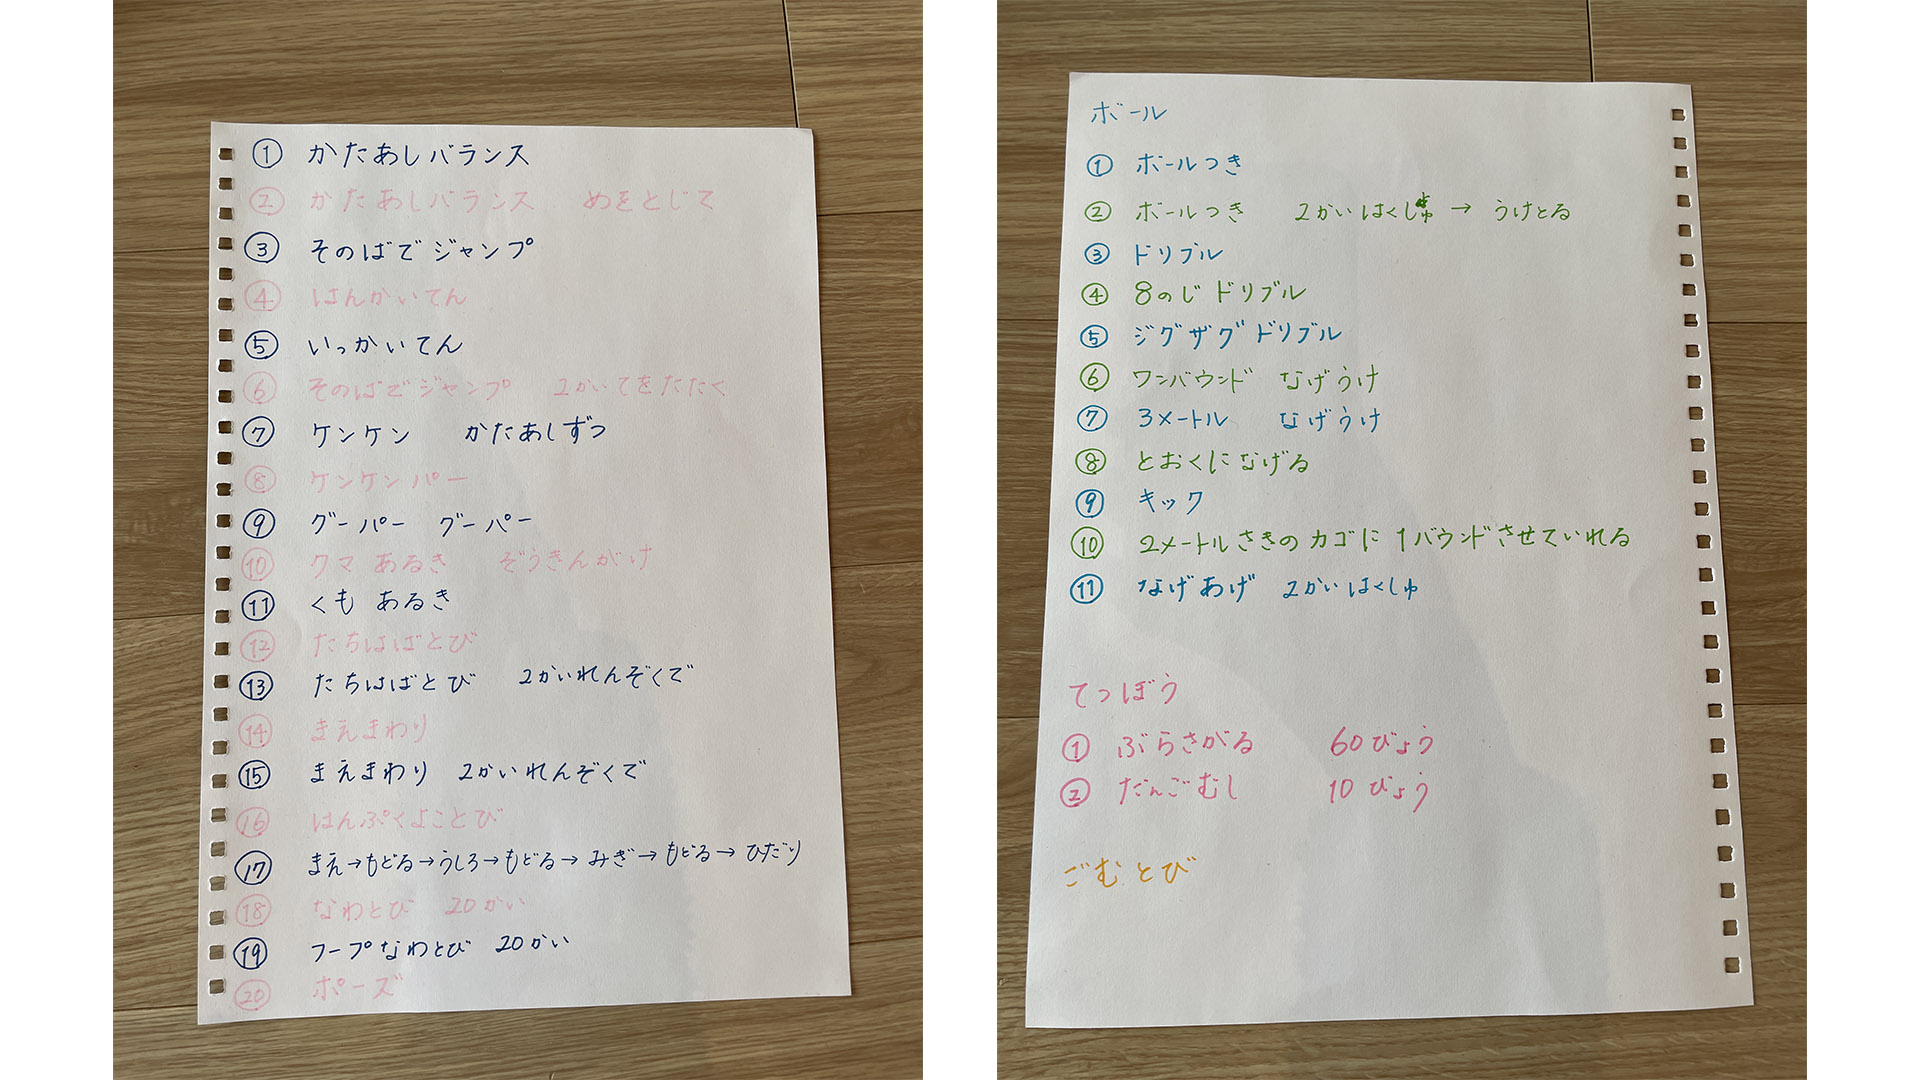 ① かたあしバランス
② かたあしバランス めをとじて
③ そのばでジャンプ
④ はんかいてん
⑤ いっかいてん
⑥ そのばでジャンプ 2かいてをたたく
⑦ ケンケン かたあしずつ
⑧ ケンケンパー
⑨ グーパー グーパー
⑩ クマあるき ぞうきんがけ
⑪ くもあるき
⑫ たちはばとび
⑬ たちはばとび 2かいれんぞくで
⑭ まえまわり
⑮ まえまわり 2かいれんぞくで
⑯ はんぷくよことび
⑰ まえ→もどる→うしろ→もどる→みぎ→もどる→ひだり
⑱ なわとび 20かい
⑲ フープなわとび 20かい
⑳ ポーズ
ボール
① ボールつき
② ボールつき 2かいはくしゅ → うけとる
③ ドリブル
④ 8のじドリブル
⑤ ジグザグドリブル
⑥ ワンバウンド なげうけ
⑦ 3メートル なげうけ
⑧ とおくになげる
⑨ キック
⑩ 2メートルさきのカゴに1バウンドさせていれる
⑪ なげあげ 2かいはくしゅ
てつぼう
① ぶらさがる 60びょう
② だんごむし 10びょう
ごむとび